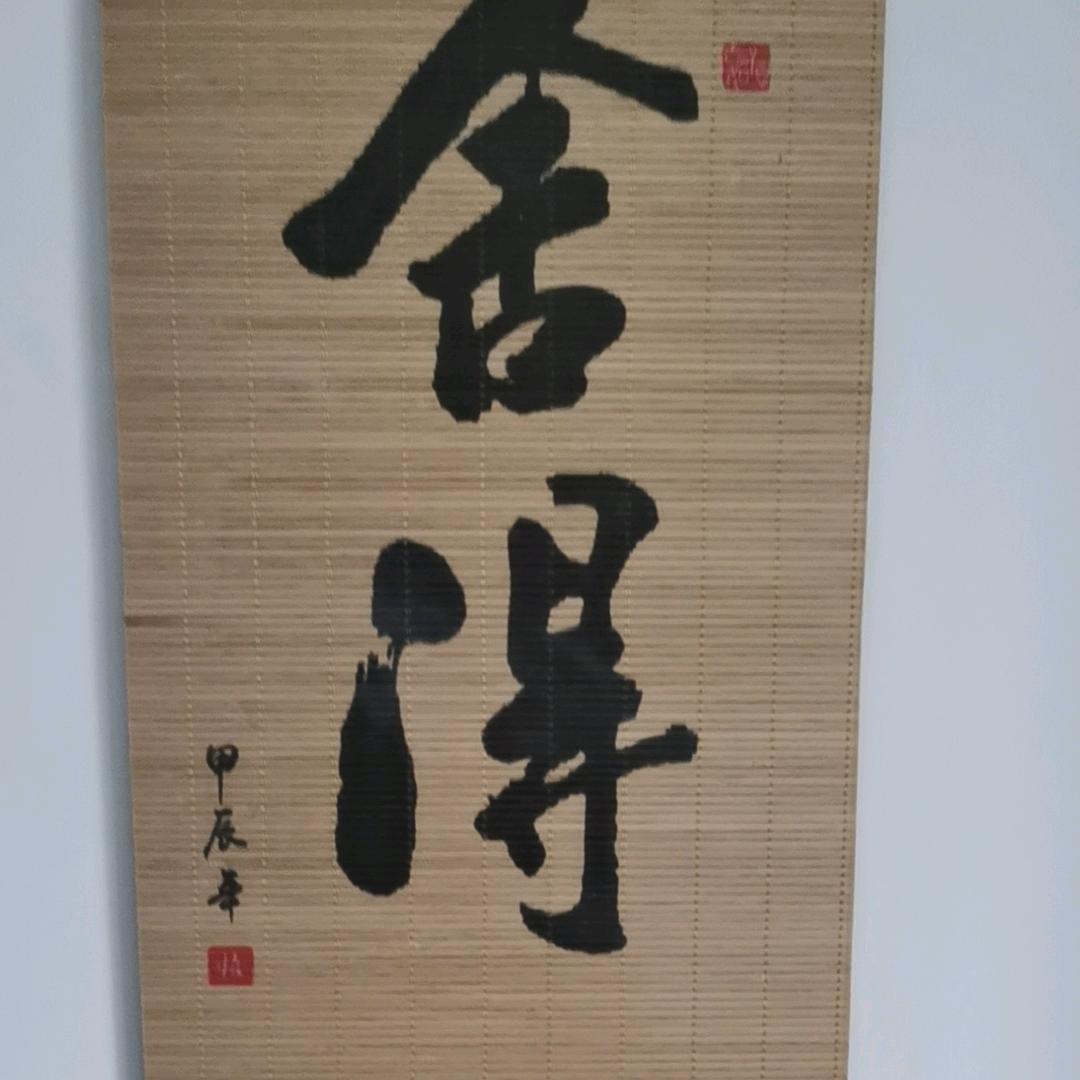 舍得
甲辰年